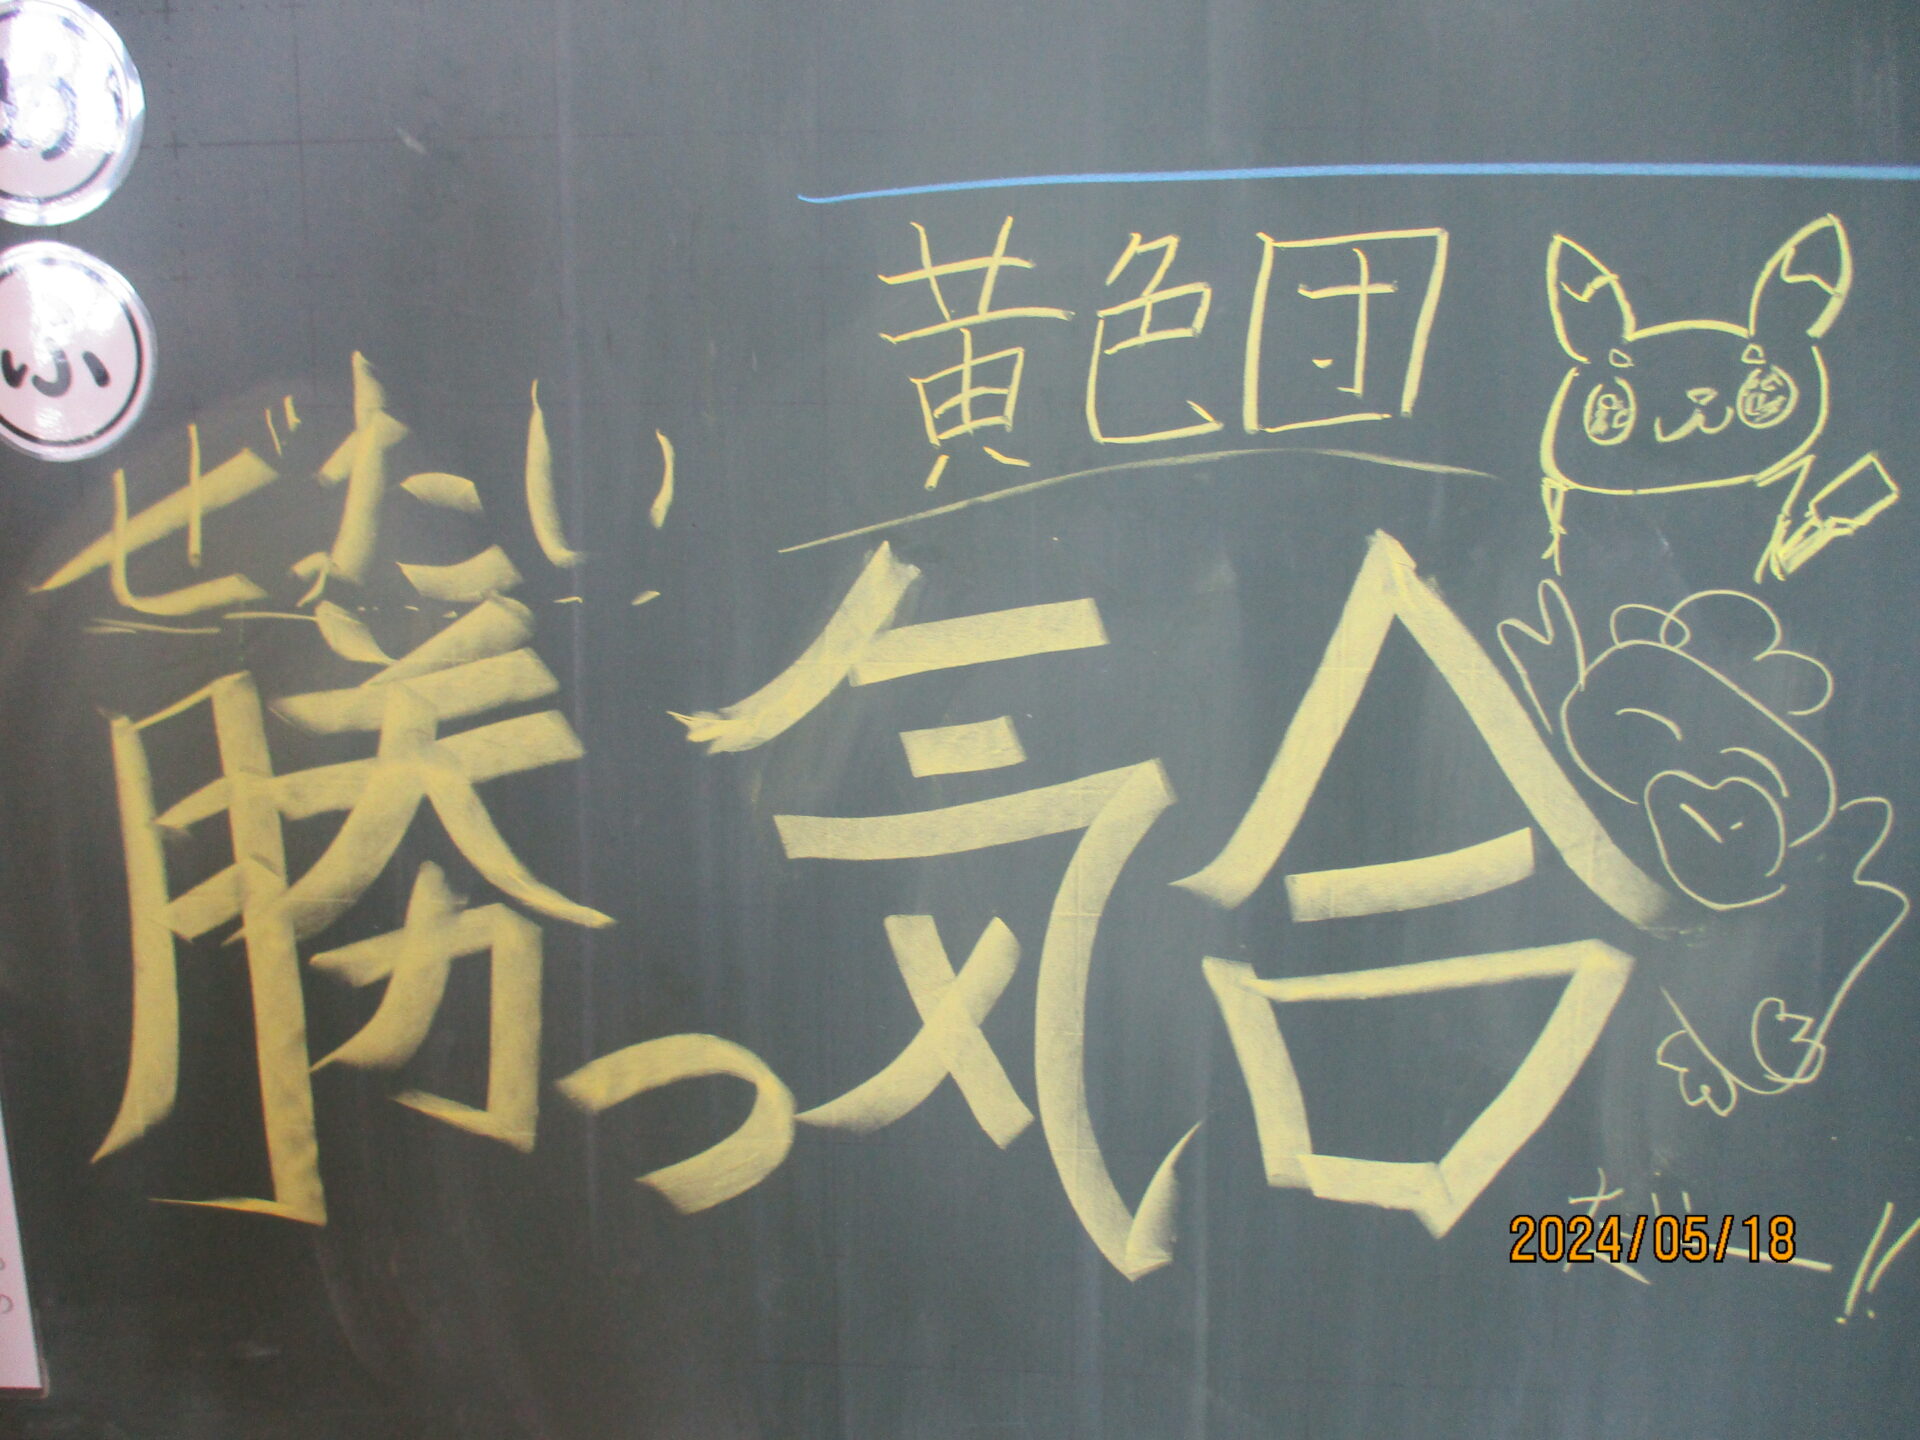 ふ
黄色団
ぜったい
勝つ
気合
だー!!
2024/05/18